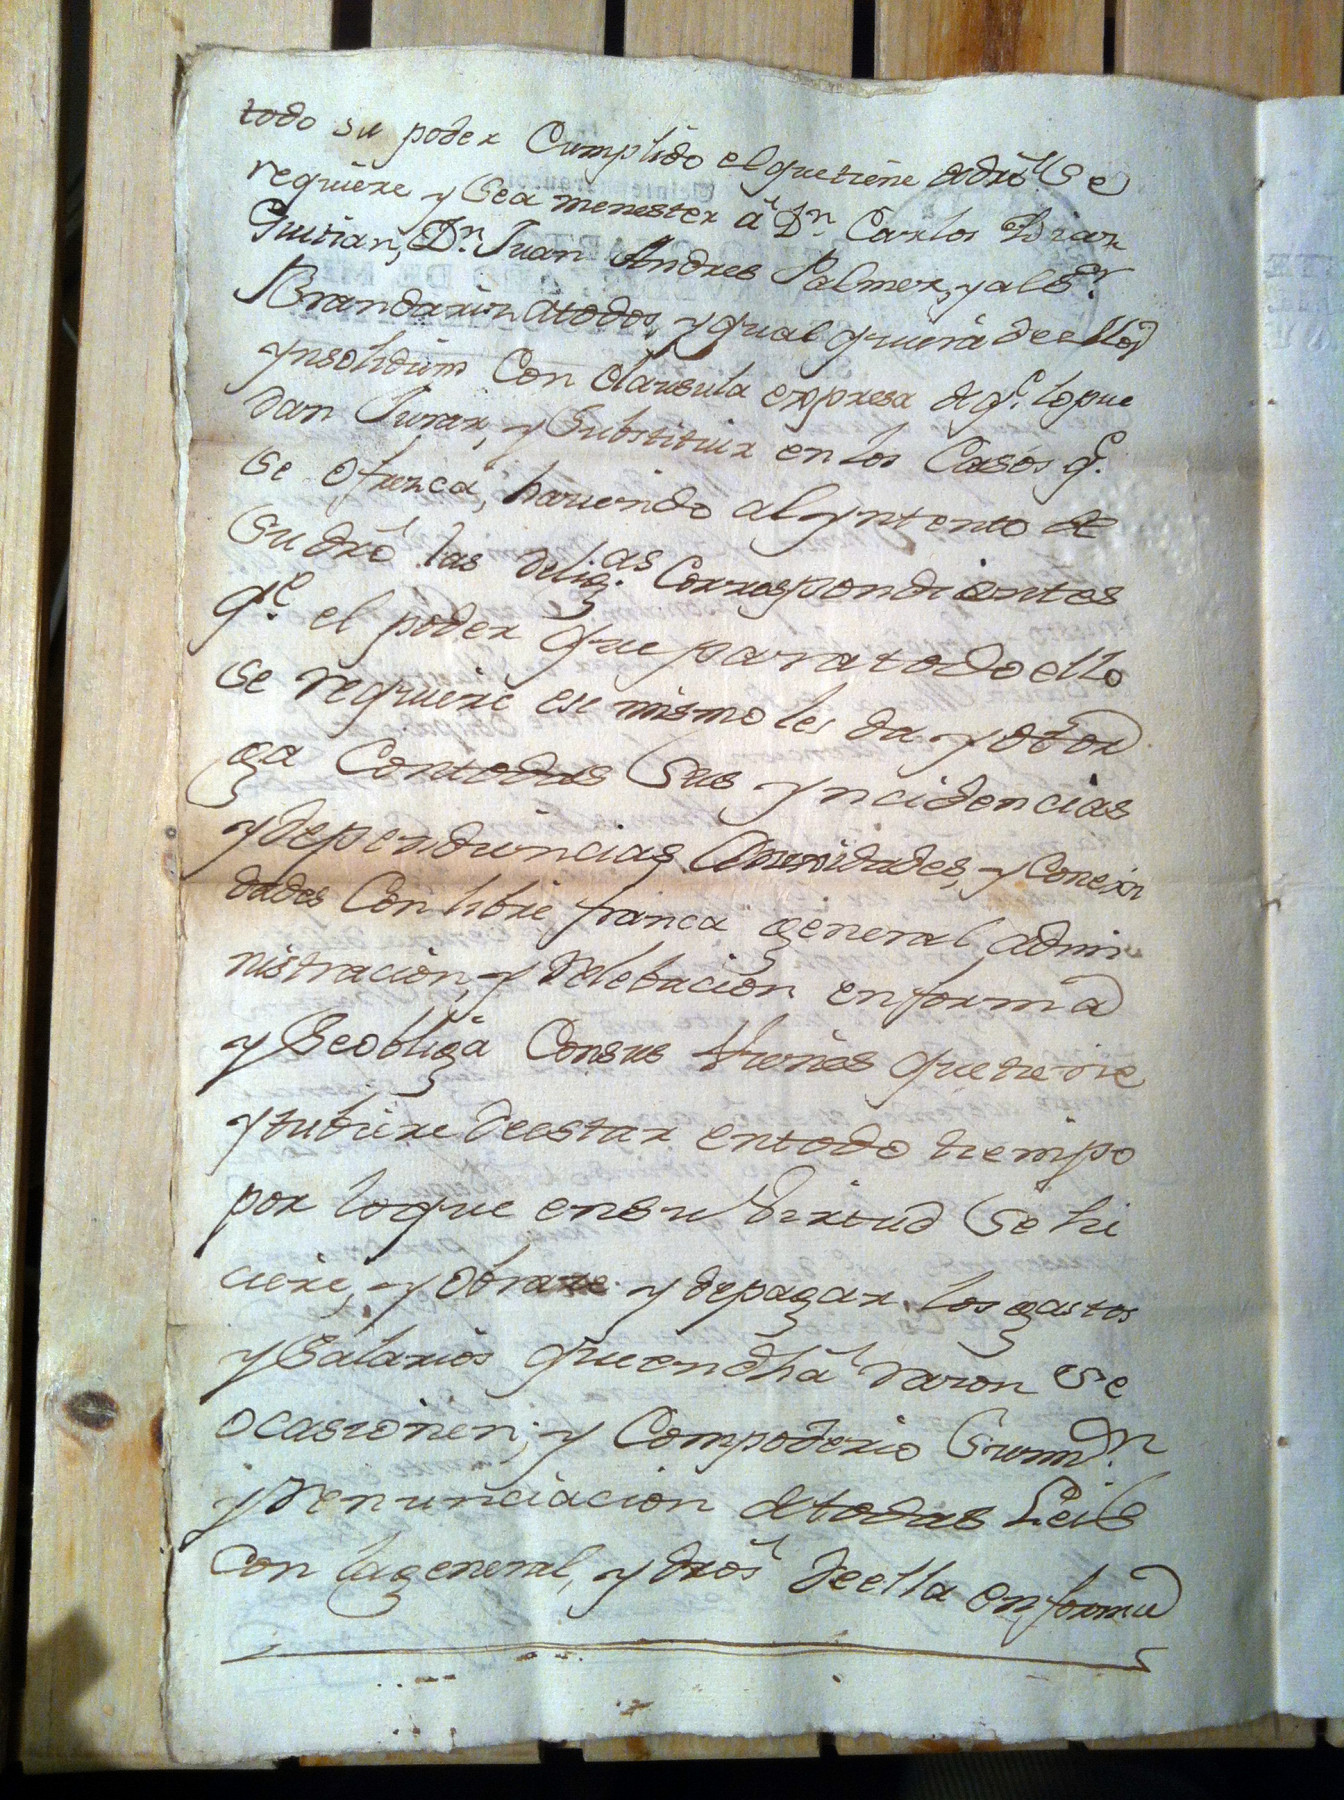 todo su poder Cumplido el que tiene dedrõ se
requiere y sea menester â Dn. Carlos Diaz
Guitian, Dn. Juan Andres Palmer, y al Sr.
Brandariz atodos, y qual quiera deellos
ynsolidum Con clausula expresa de q.e lo pue
dan Jurar, y Substituir en los Casos q.e
se ofrezca, haciendo al yntento de
su drõ las delig.as Correspondientes
q.e el poder que para todo ello
se requiere ese mismo les da y otor
ga Contodas sus yncidencias
y dependencias Anexidades, y Conexi
dades Con libre franca general, admi
nistracion, y Relebacion en forma
y se obliga Consus Vienes que tiene
y tubiere deestar entodo tiempo
por loque ensu Virtud se hi
ciere, y obrare y depagar los gastos
y salarios que en dhã razon se
ocasionen; y Compoderio Sumn.
y Renunciacion de todas Leis
con la general, y drõs deella en forma